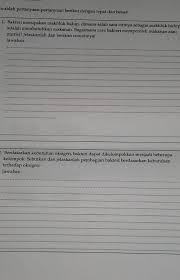 Jawablah pertanyaan-pertanyaan berikut dengan tepat dan benar!
1. Bakteri merupakan makhluk hidup, dimana salah satu cirinya sebagai makhluk hidup
adalah membutuhkan makanan. Bagaimana cara bakteri memperoleh makanan atau
nutrisi? Jelaskanlah dan berikan contohnya!
Jawaban
Berdasarkan kebutuhan oksigen, bakteri dapat dikelompokkan menjadi beberapa
kelompok. Sebutkan dan jelaskanlah pembagian bakteri berdasarkan kebutuhan
terhadap oksigen!
Jawaban